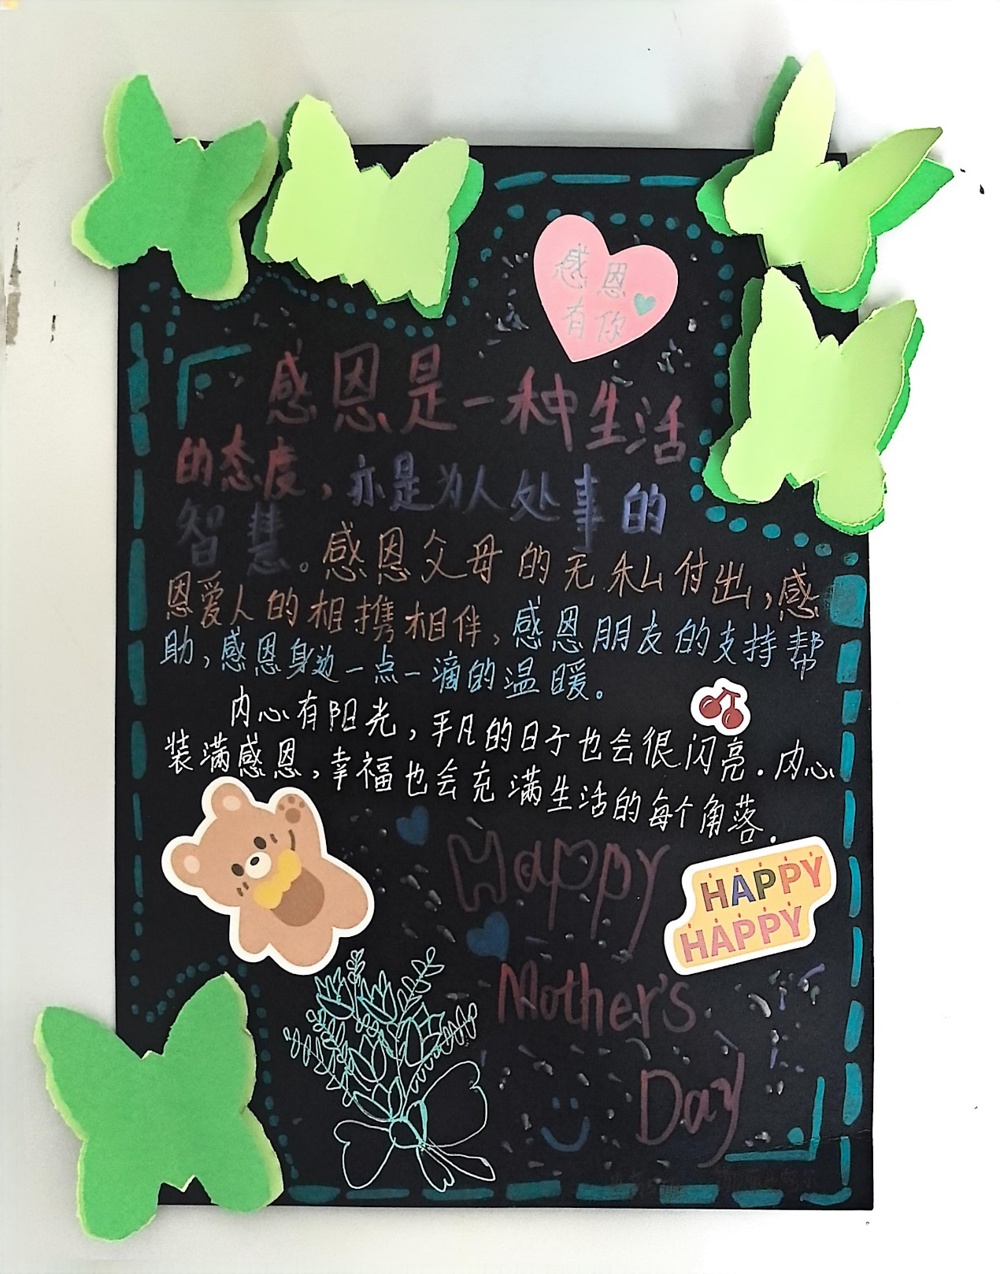 感恩
有你
感恩是一种生活
的态度，亦是为人处事的
智慧。感恩父母的无私付出，感
恩爱人的相携相伴，感恩朋友的支持帮
助，感恩身边一点一滴的温暖。
内心有阳光，平凡的日子也会很闪亮.内心
装满感恩，幸福也会充满生活的每个角落.
Happy
HAPPY
HAPPY
Mother's
Day